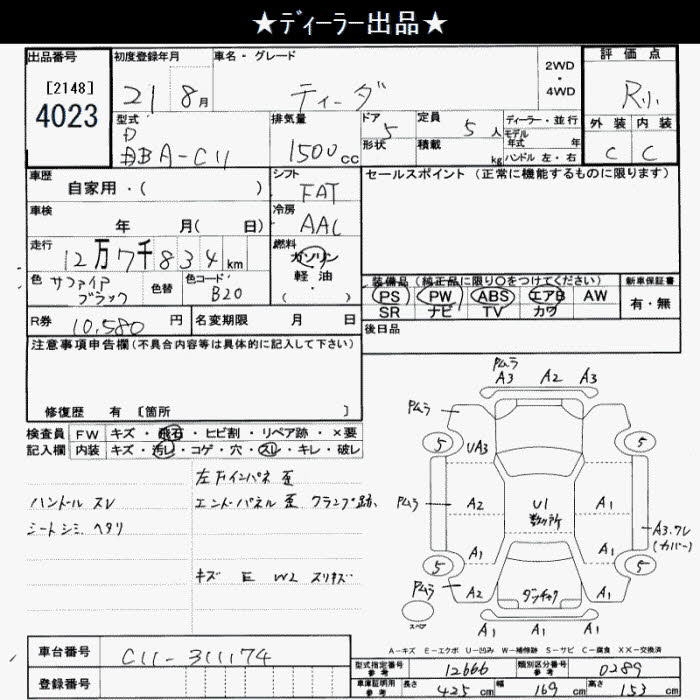 ★ディーラー出品★
出品番号
[2148]
4023
初度登録年月
21 8月
車名・グレード
ティーダ
2WD
・
4WD
評価点
外装 内装
C C
型式
DBA-C11
排気量
1500cc
ドア
5
形状
定員
5人
積載
kg
ディーラー・並行
モデル
年式 年
ハンドル 左・右
車歴
自家用・( )
シフト
FAT
セールスポイント (正常に機能するものに限ります)
車検
年 月( 日)
冷房
AAC
走行
12万7千834km
燃料
ガソリン
軽・油
・
( )
色
サファイア
ブラック
色替
色コード
B20
装備品 (純正品に限り○をつけてください)
PS PW ABS エアB AW
SR ナビ TV カワ
新車保証書
有・無
R券
10,580円
名変期限 月 日
後日品
注意事項申告欄(不具合内容等は具体的に記入して下さい)
修復歴 有 [箇所 ]
検査員
記入欄
FW キズ・飛石・ヒビ割・リペア跡・×要
内装 キズ・汚レ・コゲ・穴・スレ・キレ・破レ
ハンドル スレ
シートシミ ヘタリ
左フインパネ 歪
エンドパネル 歪 クランプ跡
キズ E W2 スリキズ
Pムラ
A3 A2 A3
Pムラ
5 UA3 5
Pムラ A2 U1 A1
数ヶ所
A3.ワレ
(カバー)
A1 A1
5 5
Pムラ A2 ダッチャク A1
スペア
A1 A1 A1
A-キズ E-エクボ U-凹み W-補修跡 S-サビ C-腐食 XX-交換済
車台番号
C11-311174
登録番号
型式指定番号
参考
12666
類別区分番号
参考
0289
車庫証明用
参考
長さ 425cm 幅 169cm 高さ 153cm